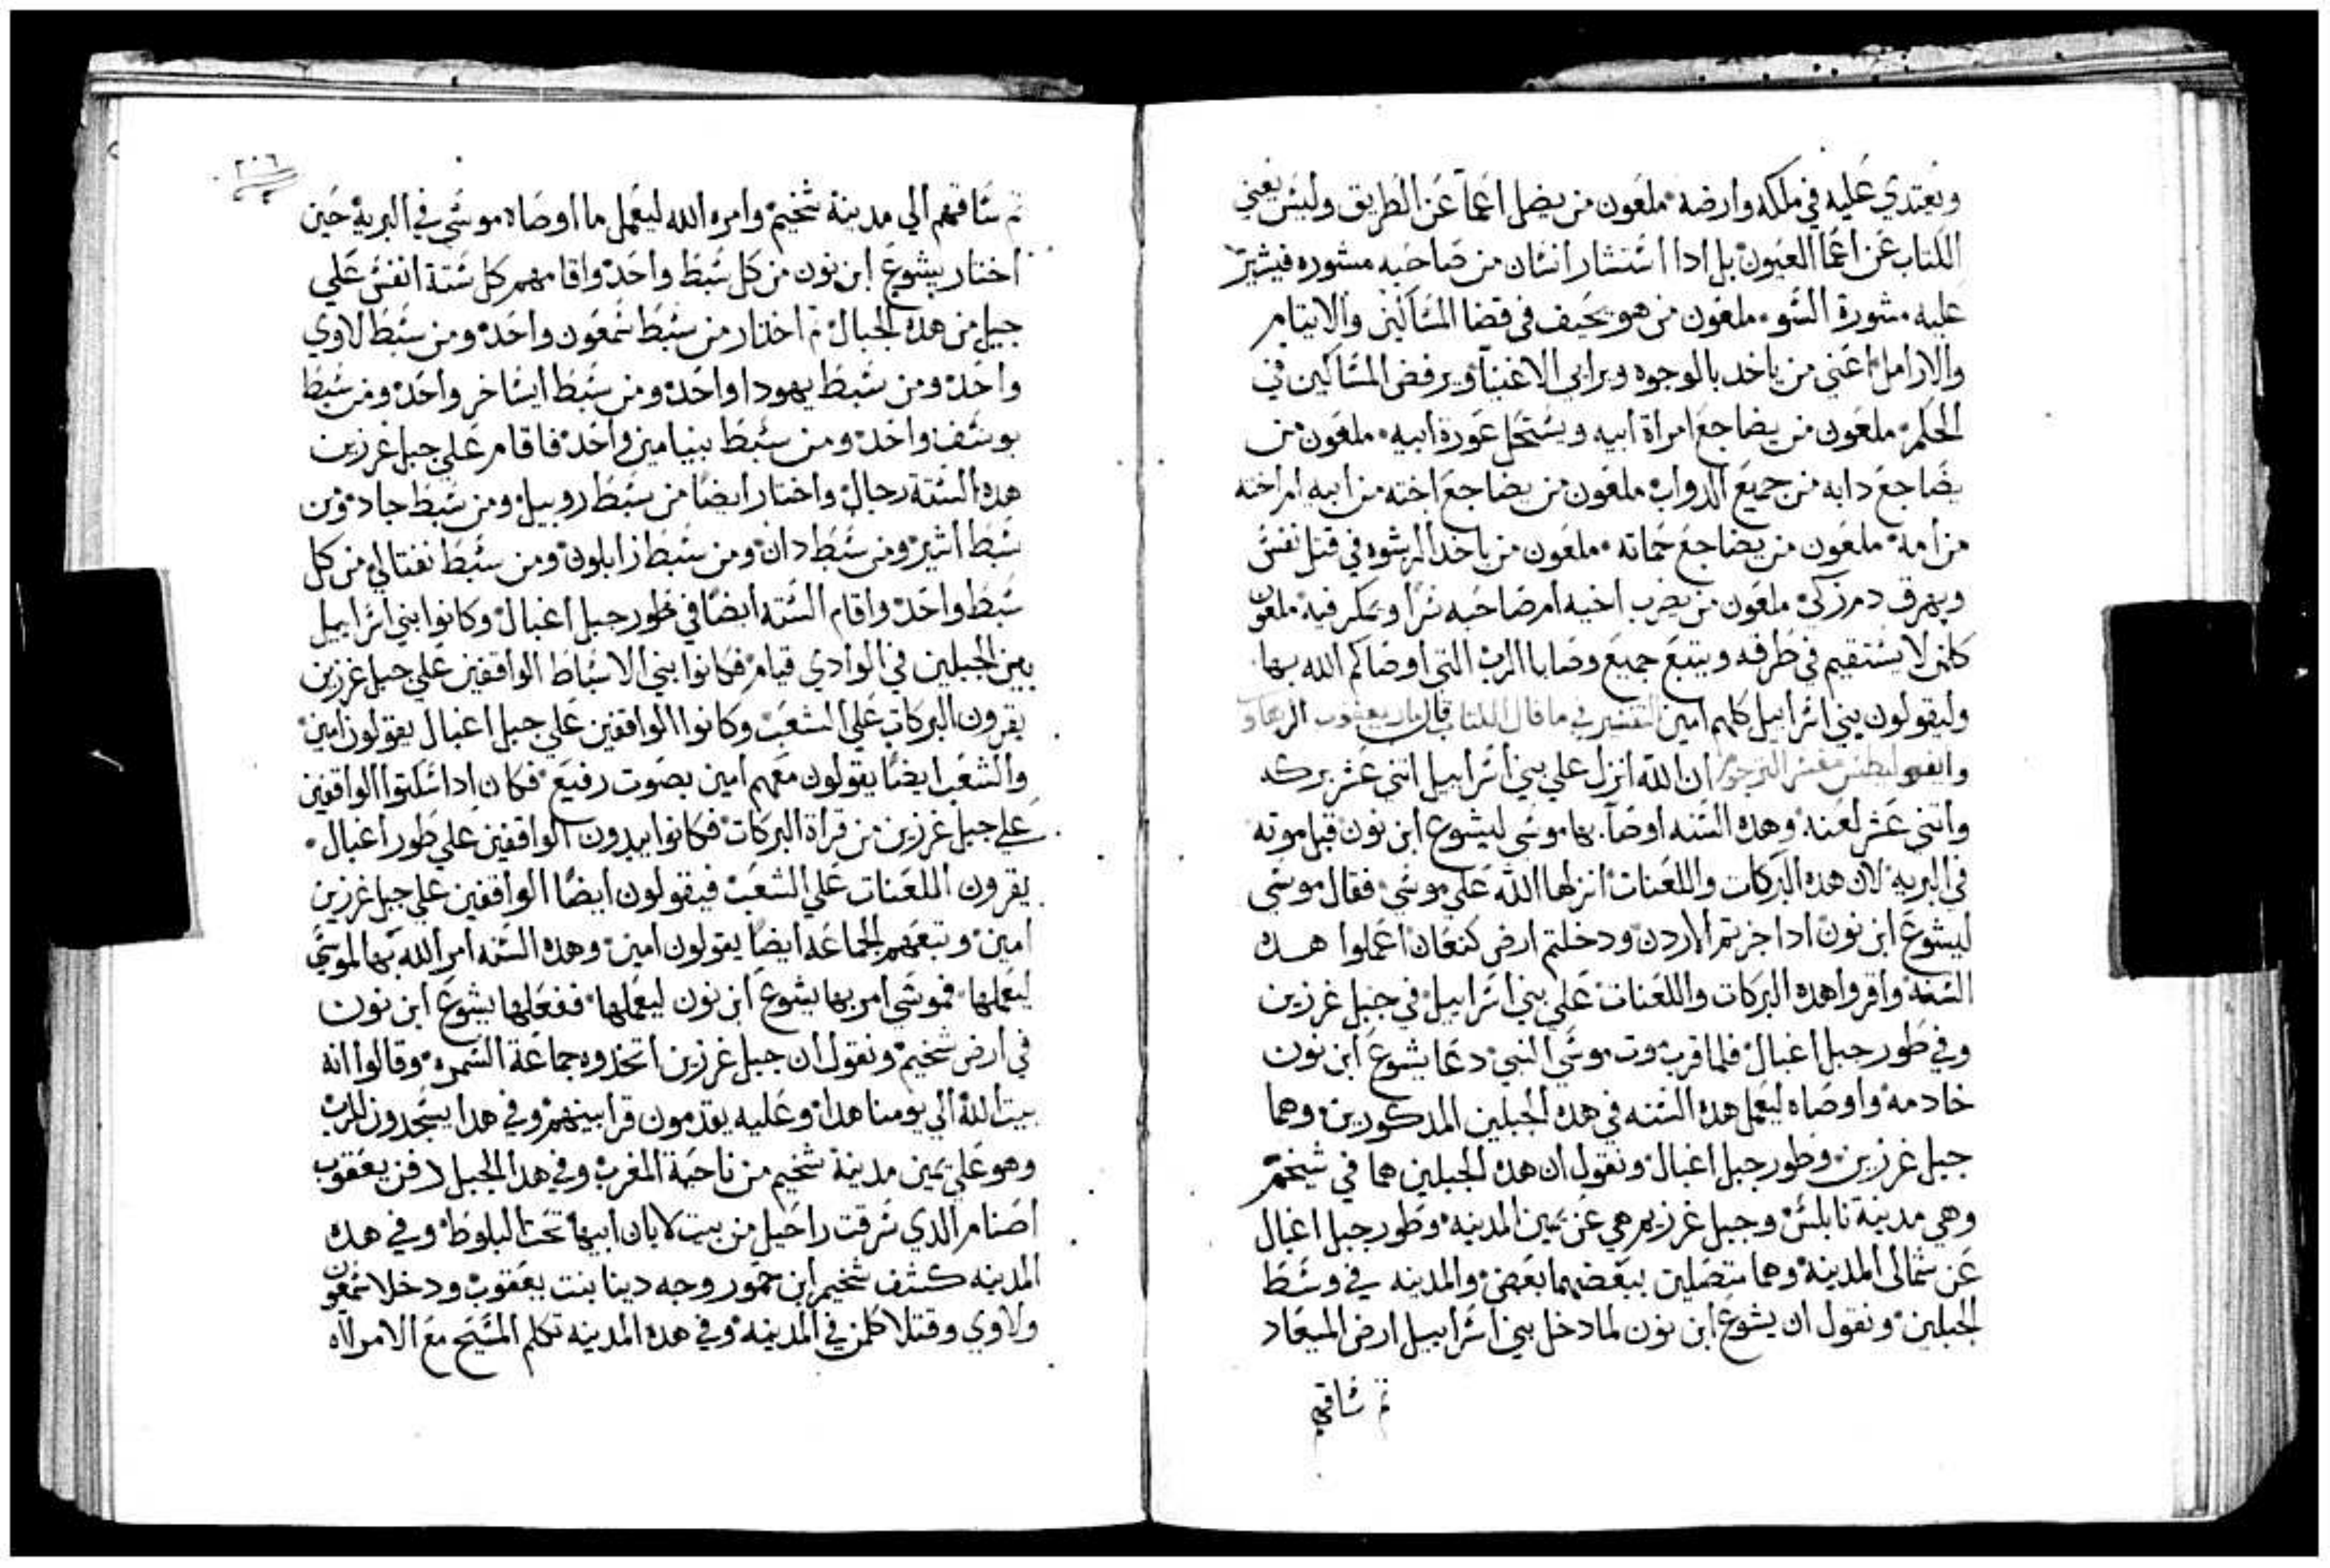 ويعتدي عليه في ملكه وارضه ملعون من يضل اعماً عن الطريق وليس يعني
الكتاب عن اعما العيون بل ادا استشار انسان من صاحبه مشوره فيشير
عليه مشورة السو ملعون من هو يحيف في قضا المساكين والايتام
والارامل اعني من ياخد بالوجوه ويرابي الاغنيا ويرفض المساكين في
الحكم ملعون من يضاجع امراة ابيه ويستحل عورة ابيه ملعون من
يضاجع دابه من جميع الدواب ملعون من يضاجع اخته من ابيه ام اخته
من امه ملعون من يضاجع حماته ملعون من ياخد الرشوه في قتل نفس
ويهرق دم زكي ملعون من يضرب اخيه ام صاحبه سراً ويمكر فيه ملعون
كلمن لا يستقيم في طرقه ويتبع جميع وصايا الرب التي اوصاكم الله بها
وليقولون بني اسراييل كلهم امين التفسير في ما قال الكتاب قال مار يعقوب الرهاوي
ان الله انزل علي بني اسراييل اتني عشر بركه
واتني عشر لعنه وهده السنه اوصا بها موسي ليشوع ابن نون قبل موته
في البريه لان هده البركات واللعنات انزلها الله علي موسي فقال موسي
ليشوع ابن نون ادا جزتم الاردن ودخلتم ارض كنعان اعملوا هده
السنه واقروا هده البركات واللعنات علي بني اسراييل في جبل غرزين
وفي طور جبل اغبال فلما قرب موت موسي النبي دعا يشوع ابن نون
خادمه واوصاه ليعمل هده السنه في هده الجبلين المدكورين وهما
جبل غرزين وطور جبل اغبال ونقول ان هده الجبلين هما في شيخم
وهي مدينة نابلس وجبل غرزيم هي عن يمين المدينه وطور جبل اغبال
عن شمالي المدينه وهما متصلين ببعضهما بعض والمدينه في وسط
الجبلين ونقول ان يشوع ابن نون لما دخل بني اسراييل ارض الميعاد
تم ساقهم
٢٠٦
تم ساقهم الي مدينة شخيم وامره الله ليعمل ما اوصاه موسي في البرية حين
اختار يشوع ابن نون من كل سبط واحد واقامهم كل ستة انفس علي
جبل من هده الجبال تم اختار من سبط شمعون واحد ومن سبط لاوي
واحد ومن سبط يهودا واحد ومن سبط ايساخر واحد ومن سبط
يوسف واحد ومن سبط بنيامين واحد فاقام علي جبل غرزين
هده الستة رجال واختار ايضاً من سبط روبيل ومن سبط جاد ومن
سبط اشير ومن سبط دان ومن سبط زابلون ومن سبط نفتالي من كل
سبط واحد واقام السته ايضاً في طور جبل اغبال وكانوا بني اسراييل
بين الجبلين في الوادي قيام فكانوا بني الاسباط الواقفين علي جبل غرزين
يقرون البركات علي الشعب وكانوا الواقفين علي جبل اغبال يقولون امين
والشعب ايضاً يقولون معهم امين بصوت رفيع فكان ادا سكتوا الواقفين
علي جبل غرزين من قراة البركات فكانوا يبدون الواقفين علي طور اغبال
يقرون اللعنات علي الشعب فيقولون ايضاً الواقفين علي جبل غرزين
امين وتبعهم الجماعه ايضاً يقولون امين وهده السنه امر الله بها لموسي
ليعملها فموسي امر بها يشوع ابن نون ليعملها ففعلها يشوع ابن نون
في ارض شخيم ونقول ان جبل غرزين اتخدوه جماعة السمره وقالوا انه
بيت الله الي يومنا هدا وعليه يقدمون قرابينهم وفي هدا يسجدون للرب
وهو علي يمين مدينة شخيم من ناحية المغرب وفي هدا الجبل دفن يعقوب
اصنام الدي سرقت راحيل من بيت لابان ابيها تحت البلوط وفي هده
المدينه كشف شخيم ابن حمور وجه دينا بنت يعقوب ودخلا شمعون
ولاوي وقتلا كلمن في المدينه وفي هده المدينه تكلم المسيح مع الامراه